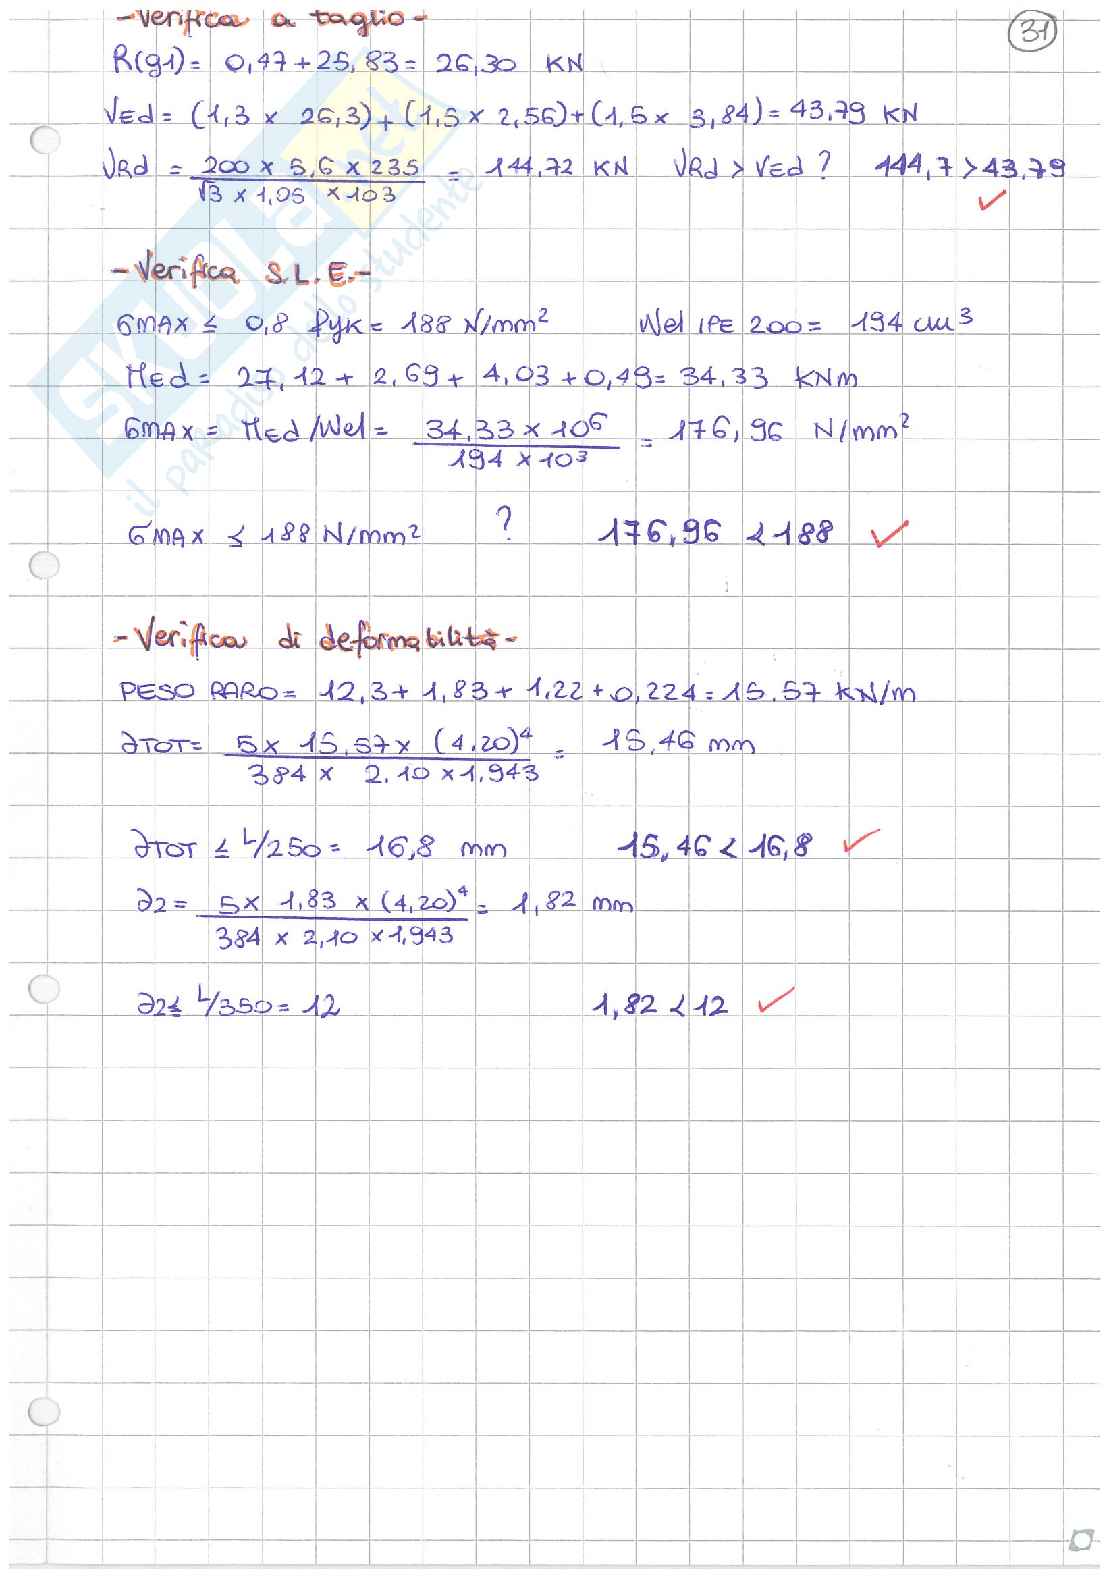 -Verifica a taglio-
31
R(g1)= 0,47+25,83= 26,30 KN
VEd= (1,3 x 26,3)+(1,5 x 2,56)+(1,5 x 3,84)= 43,79 KN
VRd = 200 x 5,6 x 235 / √3 x 1,05 x 103 = 144,72 KN VRd > VEd ? 144,7 > 43,79 ✓
-Verifica S.L.E.-
σMAX ≤ 0,8 fyk= 188 N/mm² Wel IPE 200= 194 cm³
MEd= 27,12+ 2,69+ 4,03+0,49= 34,33 KNm
σMAX= MEd/Wel= 34,33 x 10⁶ / 194 x 10³ = 176,96 N/mm²
σMAX ≤ 188 N/mm² ? 176,96 < 188 ✓
-Verifica di deformabilità-
PESO RARO= 12,3+ 1,83+ 1,22+0,224= 15.57 KN/m
∂TOT= 5x 15,57x (4.20)⁴ / 384 x 2.10 x 1,943 = 15,46 mm
∂TOT ≤ L/250= 16,8 mm 15,46 < 16,8 ✓
∂2= 5x 1,83 x (4,20)⁴ / 384 x 2,10 x 1,943 = 1,82 mm
∂2≤ L/350= 12 1,82 < 12 ✓
SKUOLA.net
il paradiso dello studente